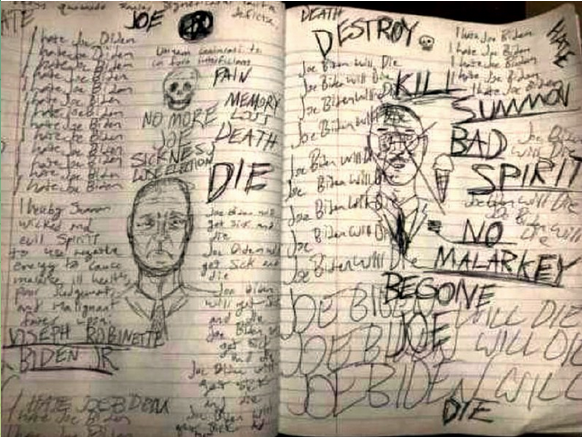 ATE JOE
I hate Joe Biden
I hate Joe Biden
I hate Joe Biden
I hate Joe Biden
I hate Joe Biden
I hate Joe Biden
I hate Joe Biden
I hate Joe Biden
I hate Joe Biden
I hate Joe Biden
I hate Joe Biden
I hate Joe Biden
PAIN
NO MORE MEMORY
JOE LOSS
SICKNESS DEATH
DIE
I hereby Summon
wicked and
evil Spirit
to use negative
energy to cause
ill health
Poor Judgement
and Malignant
JOSEPH ROBINETTE
BIDEN JR
I HATE JOE BIDEN
I hate Joe Biden
I hate Joe Biden
Joe Biden will
get Sick and
die
Joe Biden will
get Sick and
die
Joe Biden
will get Sick
and die
Joe Biden will
get Sick
and die
Joe Biden will
get Sick
and
die
Joe Biden will
get Sick and
DEATH
DESTROY
I hate Joe Biden
I hate Joe Biden
I hate Joe Biden
I hate Joe Biden
I hate Joe Biden
HATE
Joe Biden Will Die
Joe Biden Will Die
Joe Biden Will Die
Joe Biden Will Die
Joe Biden Will Die
Joe Biden Will Die
Joe Biden Will Die
Joe Biden Will Die
Joe Biden Will Die
Joe Biden Will Die
Joe Biden Will Die
KILL
SUMMON
BAD
SPIRIT
Joe Biden Will
Die
NO
MALARKEY
BEGONE
JOE
JOE BIDEN WILL DIE
JOE BIDEN WILL DIE
JOE BIDEN WILL
DIE